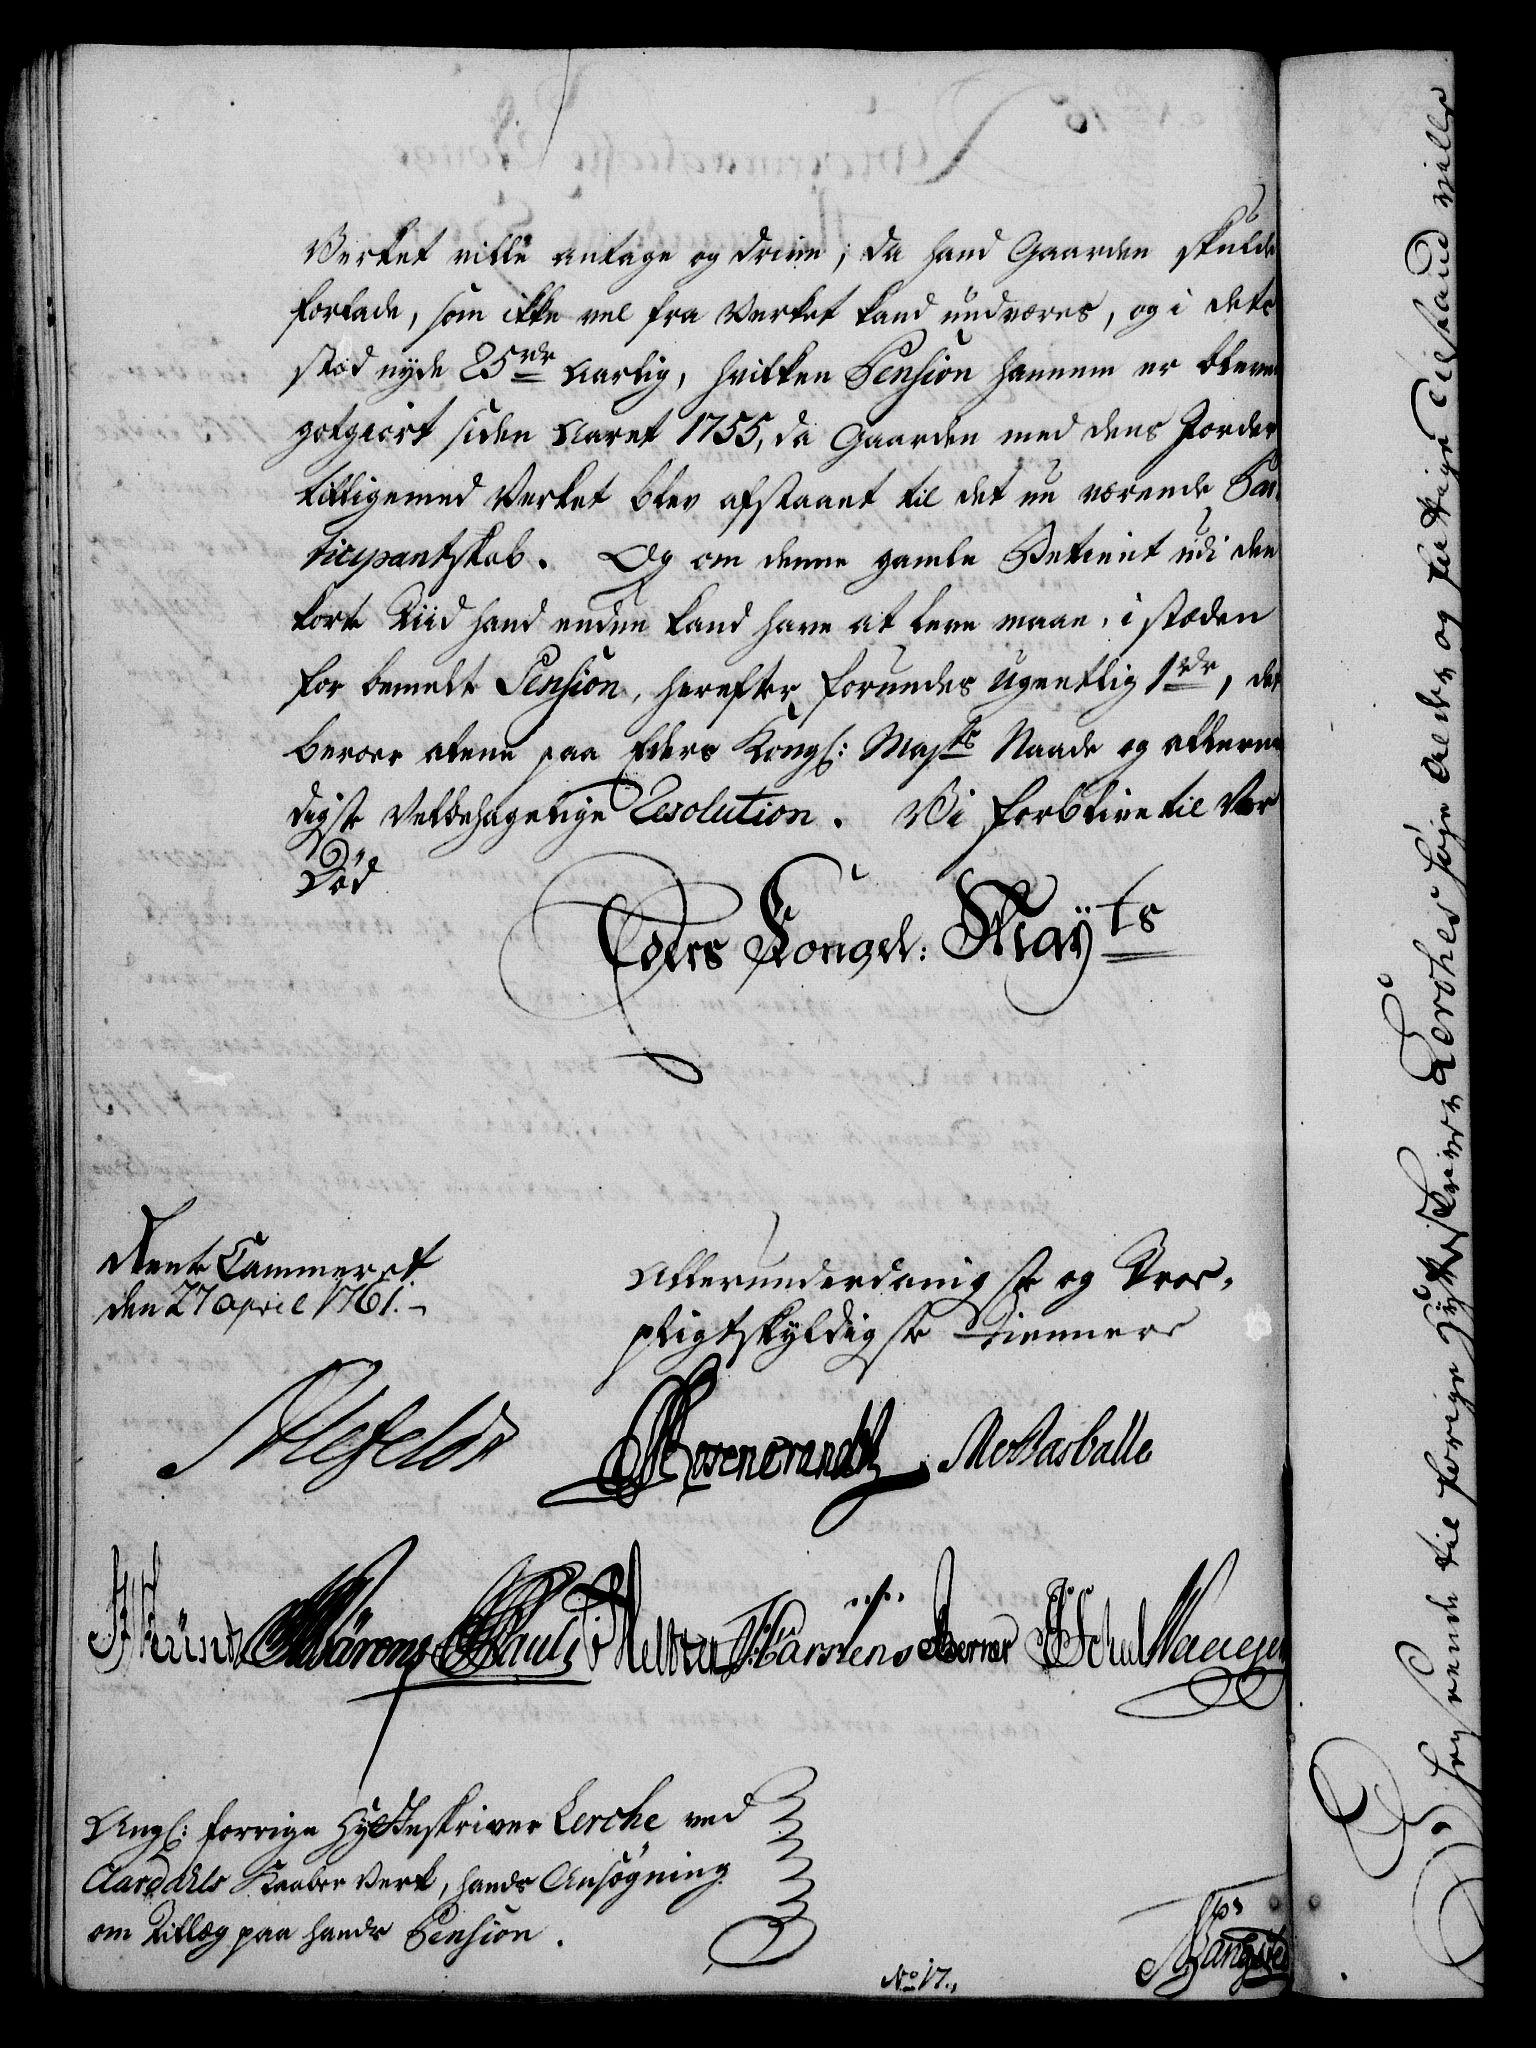 Verket ville antage og drive; da hand Gaarden skulde
forlade, som ikke vel fra Verket kand undværes, og i dets
stæd nyde 25 rdr aarlig, hvilken Pension hannem er bleven
gotgiort siden Aaret 1755, da Gaarden med dens Jorder
tilligemed Verket blev afstaaet til det nu værende Par-
ticipantskab. Og om denne gamle Betient udi den
korte Tiid hand endnu kand have at leve maae, i stæden
for bemelte Pension, herefter forundes ugentlig 1 rdr, det
beroer alene paa Eders Kongl: Mayts Naade og allerna
digste Velbehagelige Resolution. Vi forblive til Vor
Død
Eders Kongel: Mayts
Rente Cammeret
den 27 April 1761.
Allerunderdanigste og Troe-
pligtskyldigste Tienere
Ahlefeldt Rosencrandtz
Künd Bärens Pauli Carstens Berner Schul
Angl: forrige Hytteskriver Lerche ved
Aardahls Kaaber Verk, hands Ansögning
om Tillæg paa hands Pension.
No 17.
Vangsted
I Henseende til forrige Hytteskriver Lerches høje Alder og fattige Tilstand ville